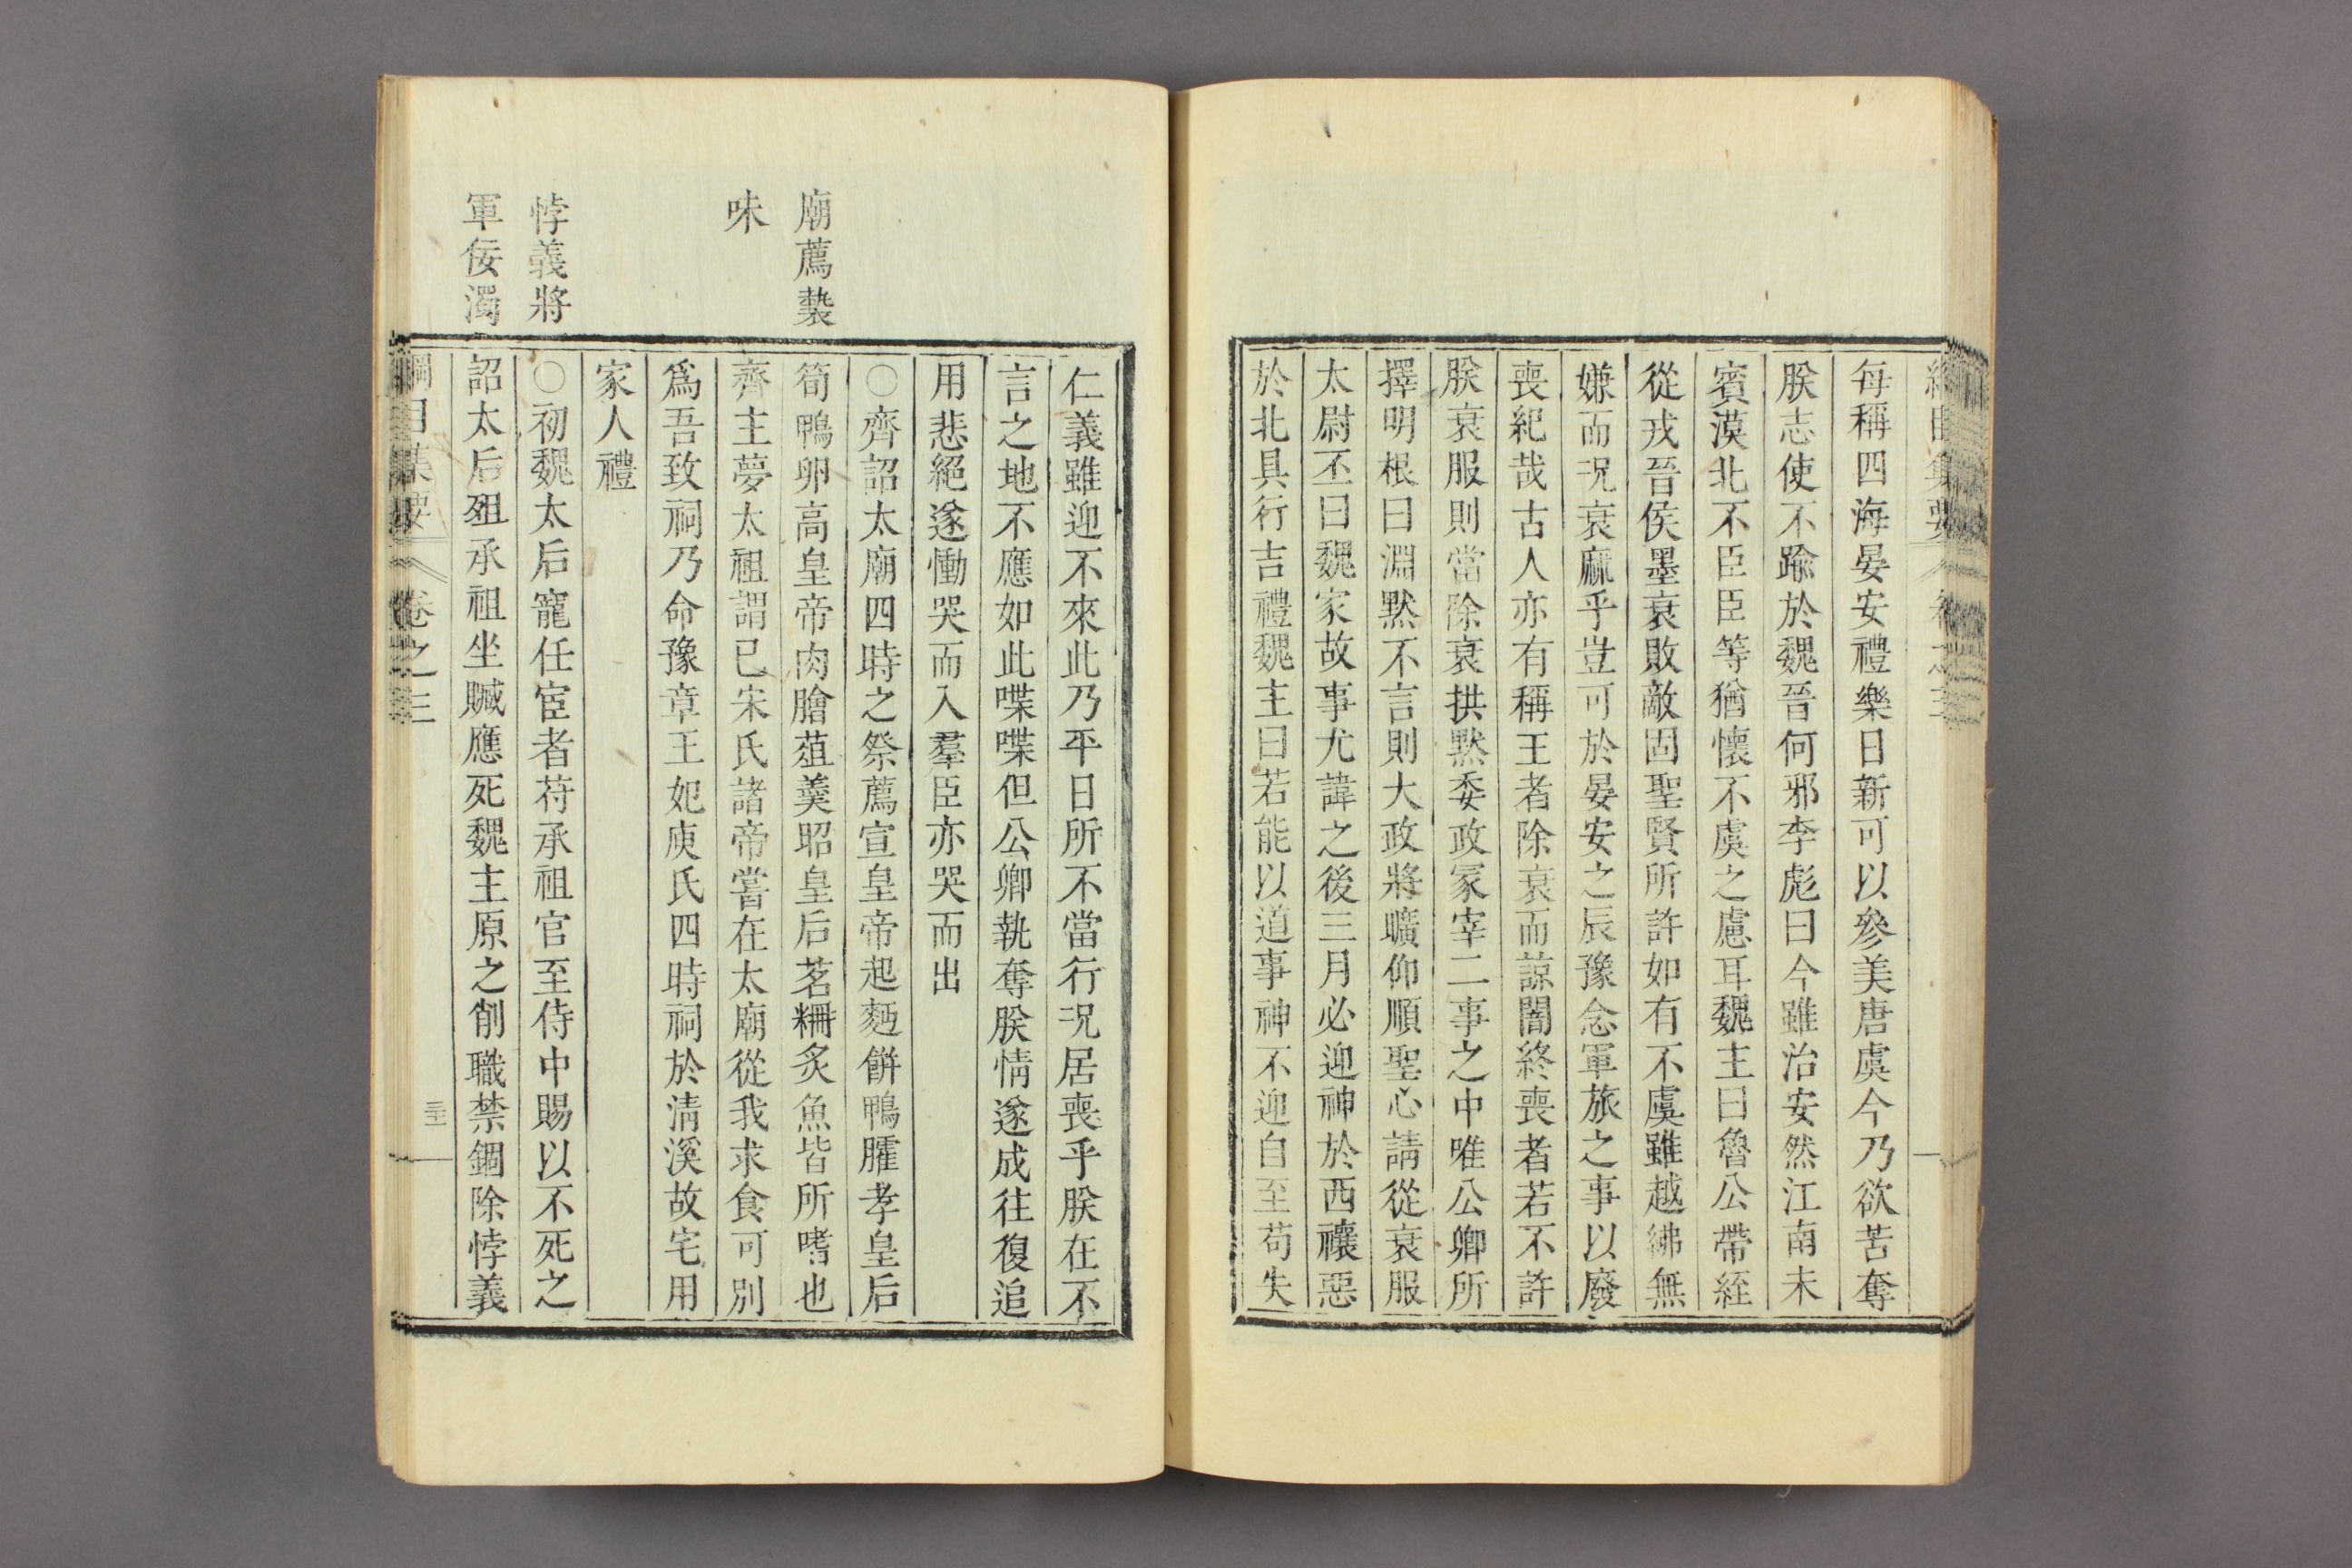 每稱四海晏安禮樂日新可以參美唐虞今乃欲苦奪
朕志使不踰於魏晉何邪李彪曰今雖治安然江南未
賓漠北不臣臣等猶懷不虞之慮耳魏主曰魯公帶絰
從戎晉侯墨衰敗敵固聖賢所許如有不虞雖越紼無
嫌而况衰麻乎豈可於晏安之辰豫念軍旅之事以廢
喪紀哉古人亦有稱王者除衰而諒闇終喪者若不許
朕衰服則當除衰拱黙委政冢宰二事之中唯公卿所
擇明根曰淵黙不言則大政將曠仰順聖心請從衰服
太尉丕曰魏家故事尤諱之後三月必迎神於西禳惡
於北具行吉禮魏主曰若能以道事神不迎自至苟失
仁義雖迎不來此乃平日所不當行况居喪乎朕在不
言之地不應如此喋喋但公卿執奪朕情遂成往復追
用悲絕遂慟哭而入羣臣亦哭而出
廟薦䙝
味
〇齊詔太廟四時之祭薦宣皇帝起麪餅鴨臛孝皇后
筍鴨卵高皇帝肉膾葅羹昭皇后茗粣炙魚皆所嗜也
齊主夢太祖謂已宋氏諸帝嘗在太廟從我求食可別
爲吾致祠乃命豫章王妃庾氏四時祠於淸溪故宅用
家人禮
悖義將
軍佞濁
〇初魏太后寵任宦者苻承祖官至侍中賜以不死之
詔太后殂承祖坐贓應死魏主原之削職禁錮除悖義
綱目集要 卷之三